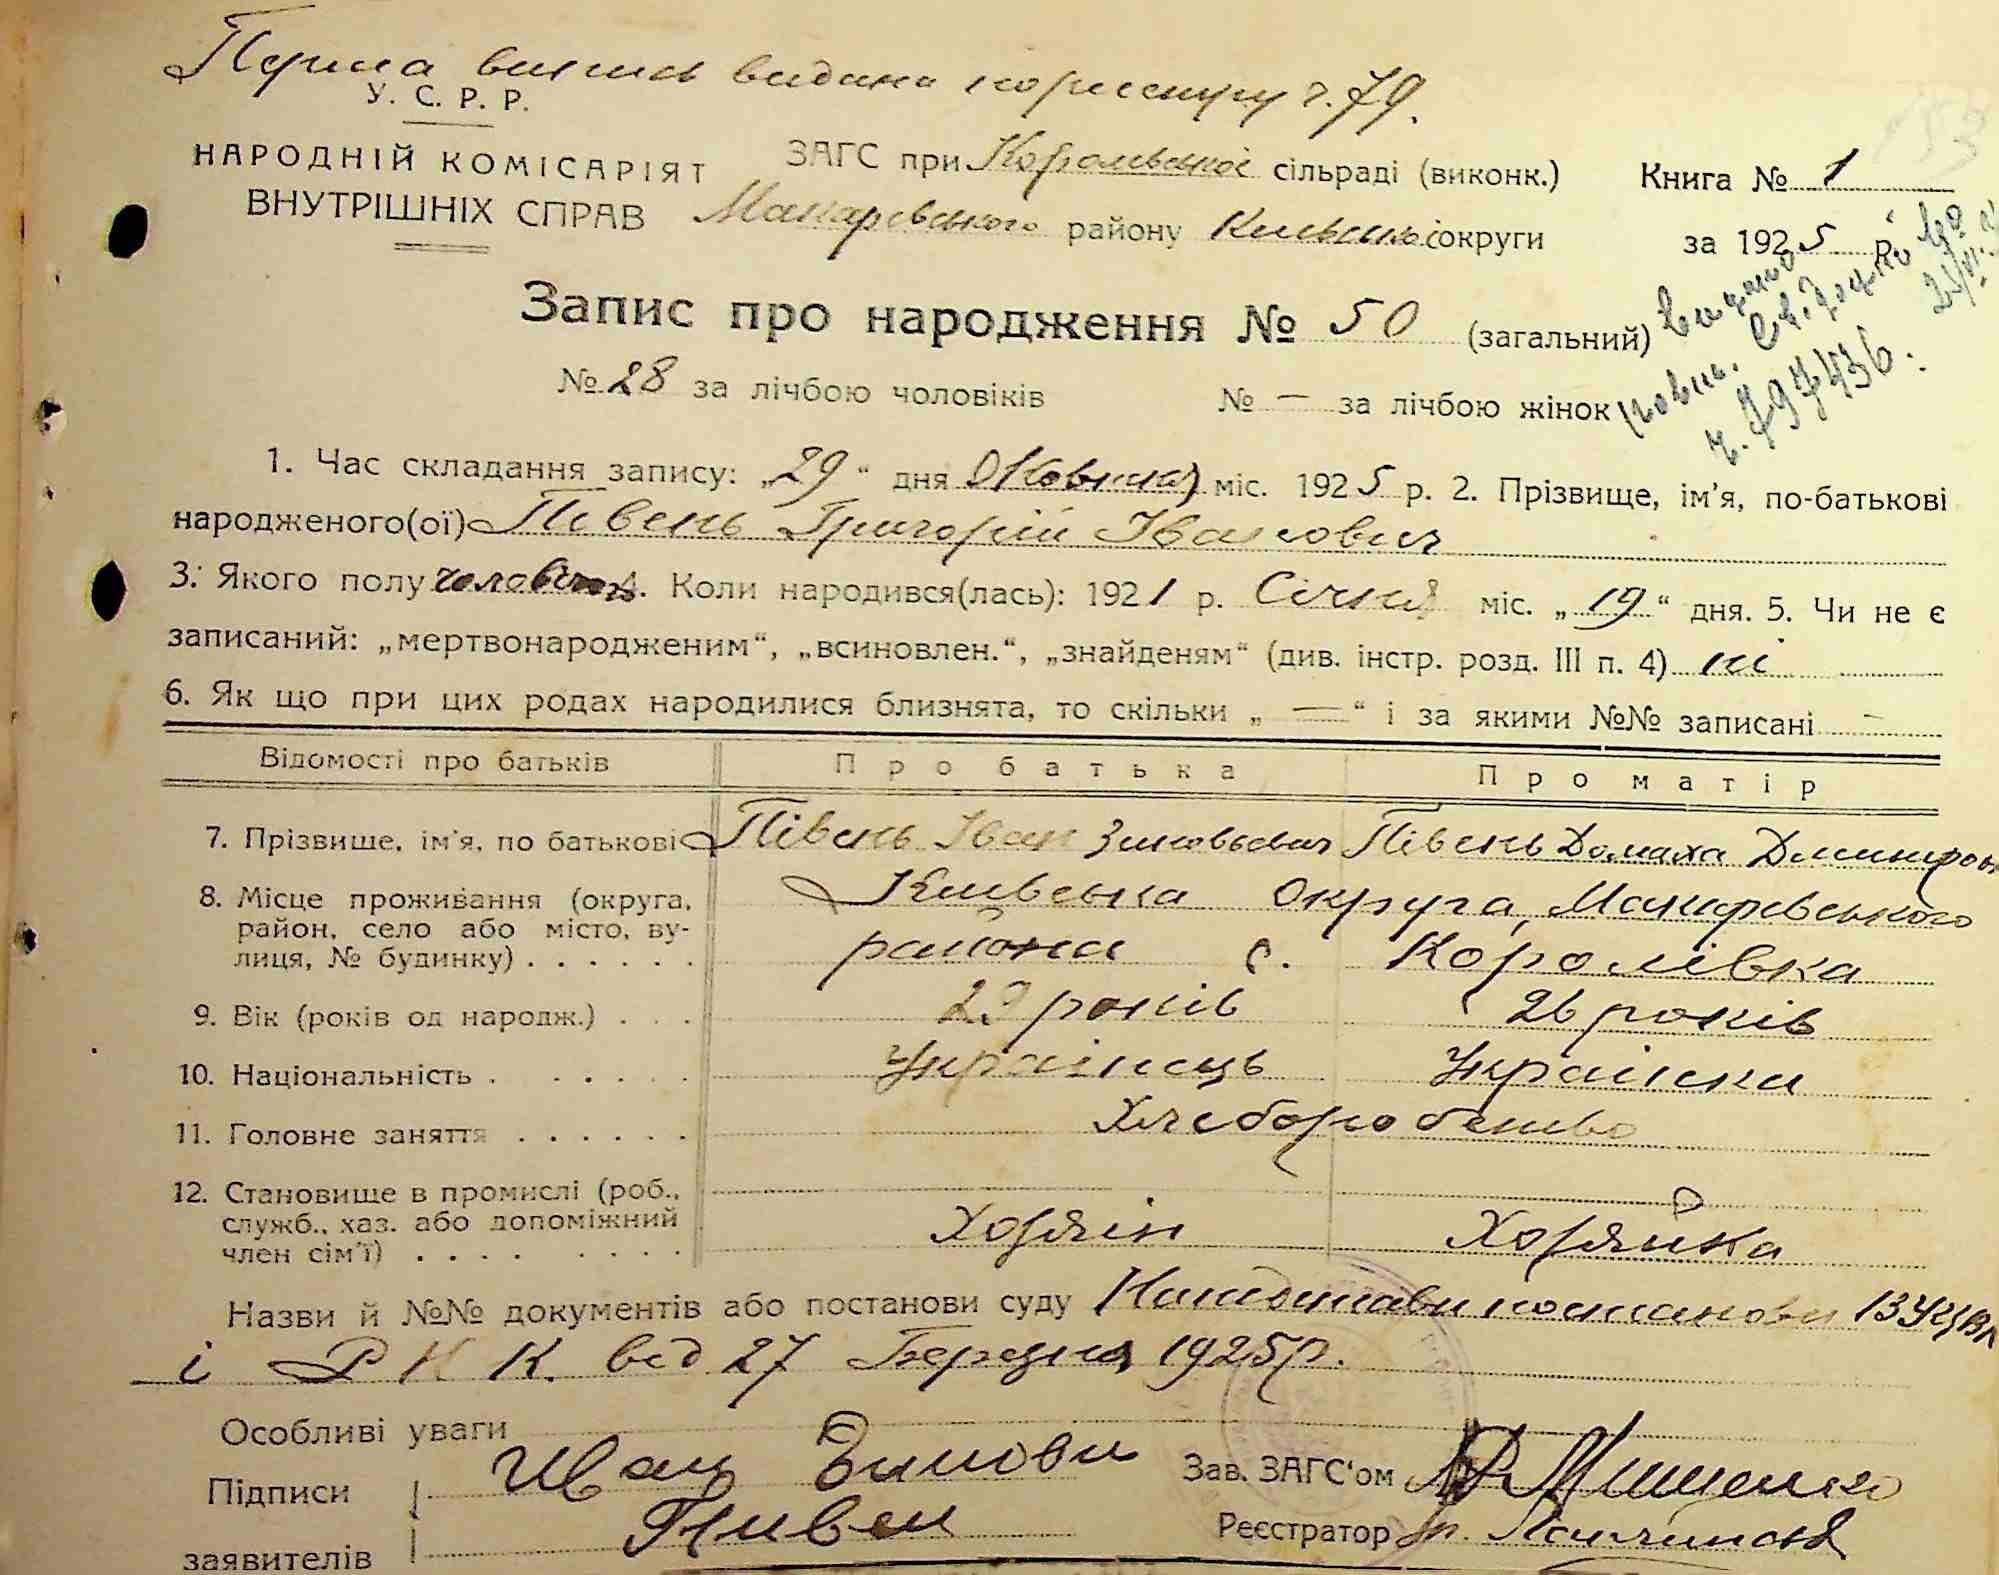 Перша випись видана
У. С. Р. Р.
НАРОДНІЙ КОМІСАРІЯТ
ВНУТРІШНІХ СПРАВ
ЗАГС при Королівської сільраді (виконк.)
Макарівського району Київської округи
Книга № 1
за 1925 р.
Запис про народження № 50 (загальний)
Видано
повт. свідоцтво
ч. 797436.
№ 28 за лічбою чоловіків № — за лічбою жінок
1. Час складання запису: „29“ дня Жовтня міс. 1925 р. 2. Прізвище, ім'я, по-батькові
народженого(ої) Півень Григорій Іванович
3. Якого полу 4. Коли народився(лась): 1921 р. Січня міс. „19“ дня. 5. Чи не є
записаний: „мертвонародженим“, „всиновлен.“, „знайденям“ (див. інстр. розд. III п. 4) ні
6. Як що при цих родах народилися близнята, то скільки „—“ і за якими №№ записані —
Відомості про батьків Про батька Про матір
7. Прізвище, ім'я, по батькові Півень Іван Зиновьевич Півень Домаха Дмитров
8. Місце проживання (округа, район, село або місто, вулиця, № будинку) . . . . . . Київська округа, Макарівського
района с. Королівка
9. Вік (років од народж.) . . . 29 років 26 років
10. Національність . . . . . . Українець Українка
11. Головне заняття . . . . . . Хліборобство
12. Становище в промислі (роб.,
служб., хаз. або допоміжний
член сім'ї) . . . . . . . . Хозяін Хозяйка
Назви й №№ документів або постанови суду На підставі постанови ВУЦВК
і Р Н К. від 27 Березня 1925 р.
Особливі уваги
Підписи Иван Зинови
заявителів Пивен
Зав. ЗАГС'ом Мищенко
Реєстратор